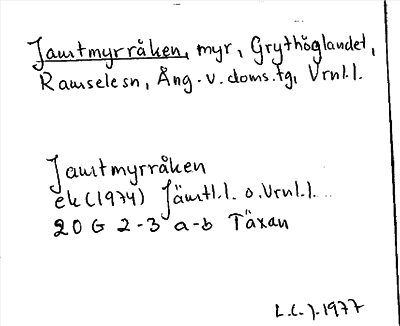 Jamtmyrråken, myr, Grythöglandet,
Ramselesn, Ång. v. doms.tg, Vrnl.l.
Jamtmyrråken
ek (1974) Jämtl.l. o. Vrnl.l.
20 G 2-3 a-b Täxan
L.C.J. 1977